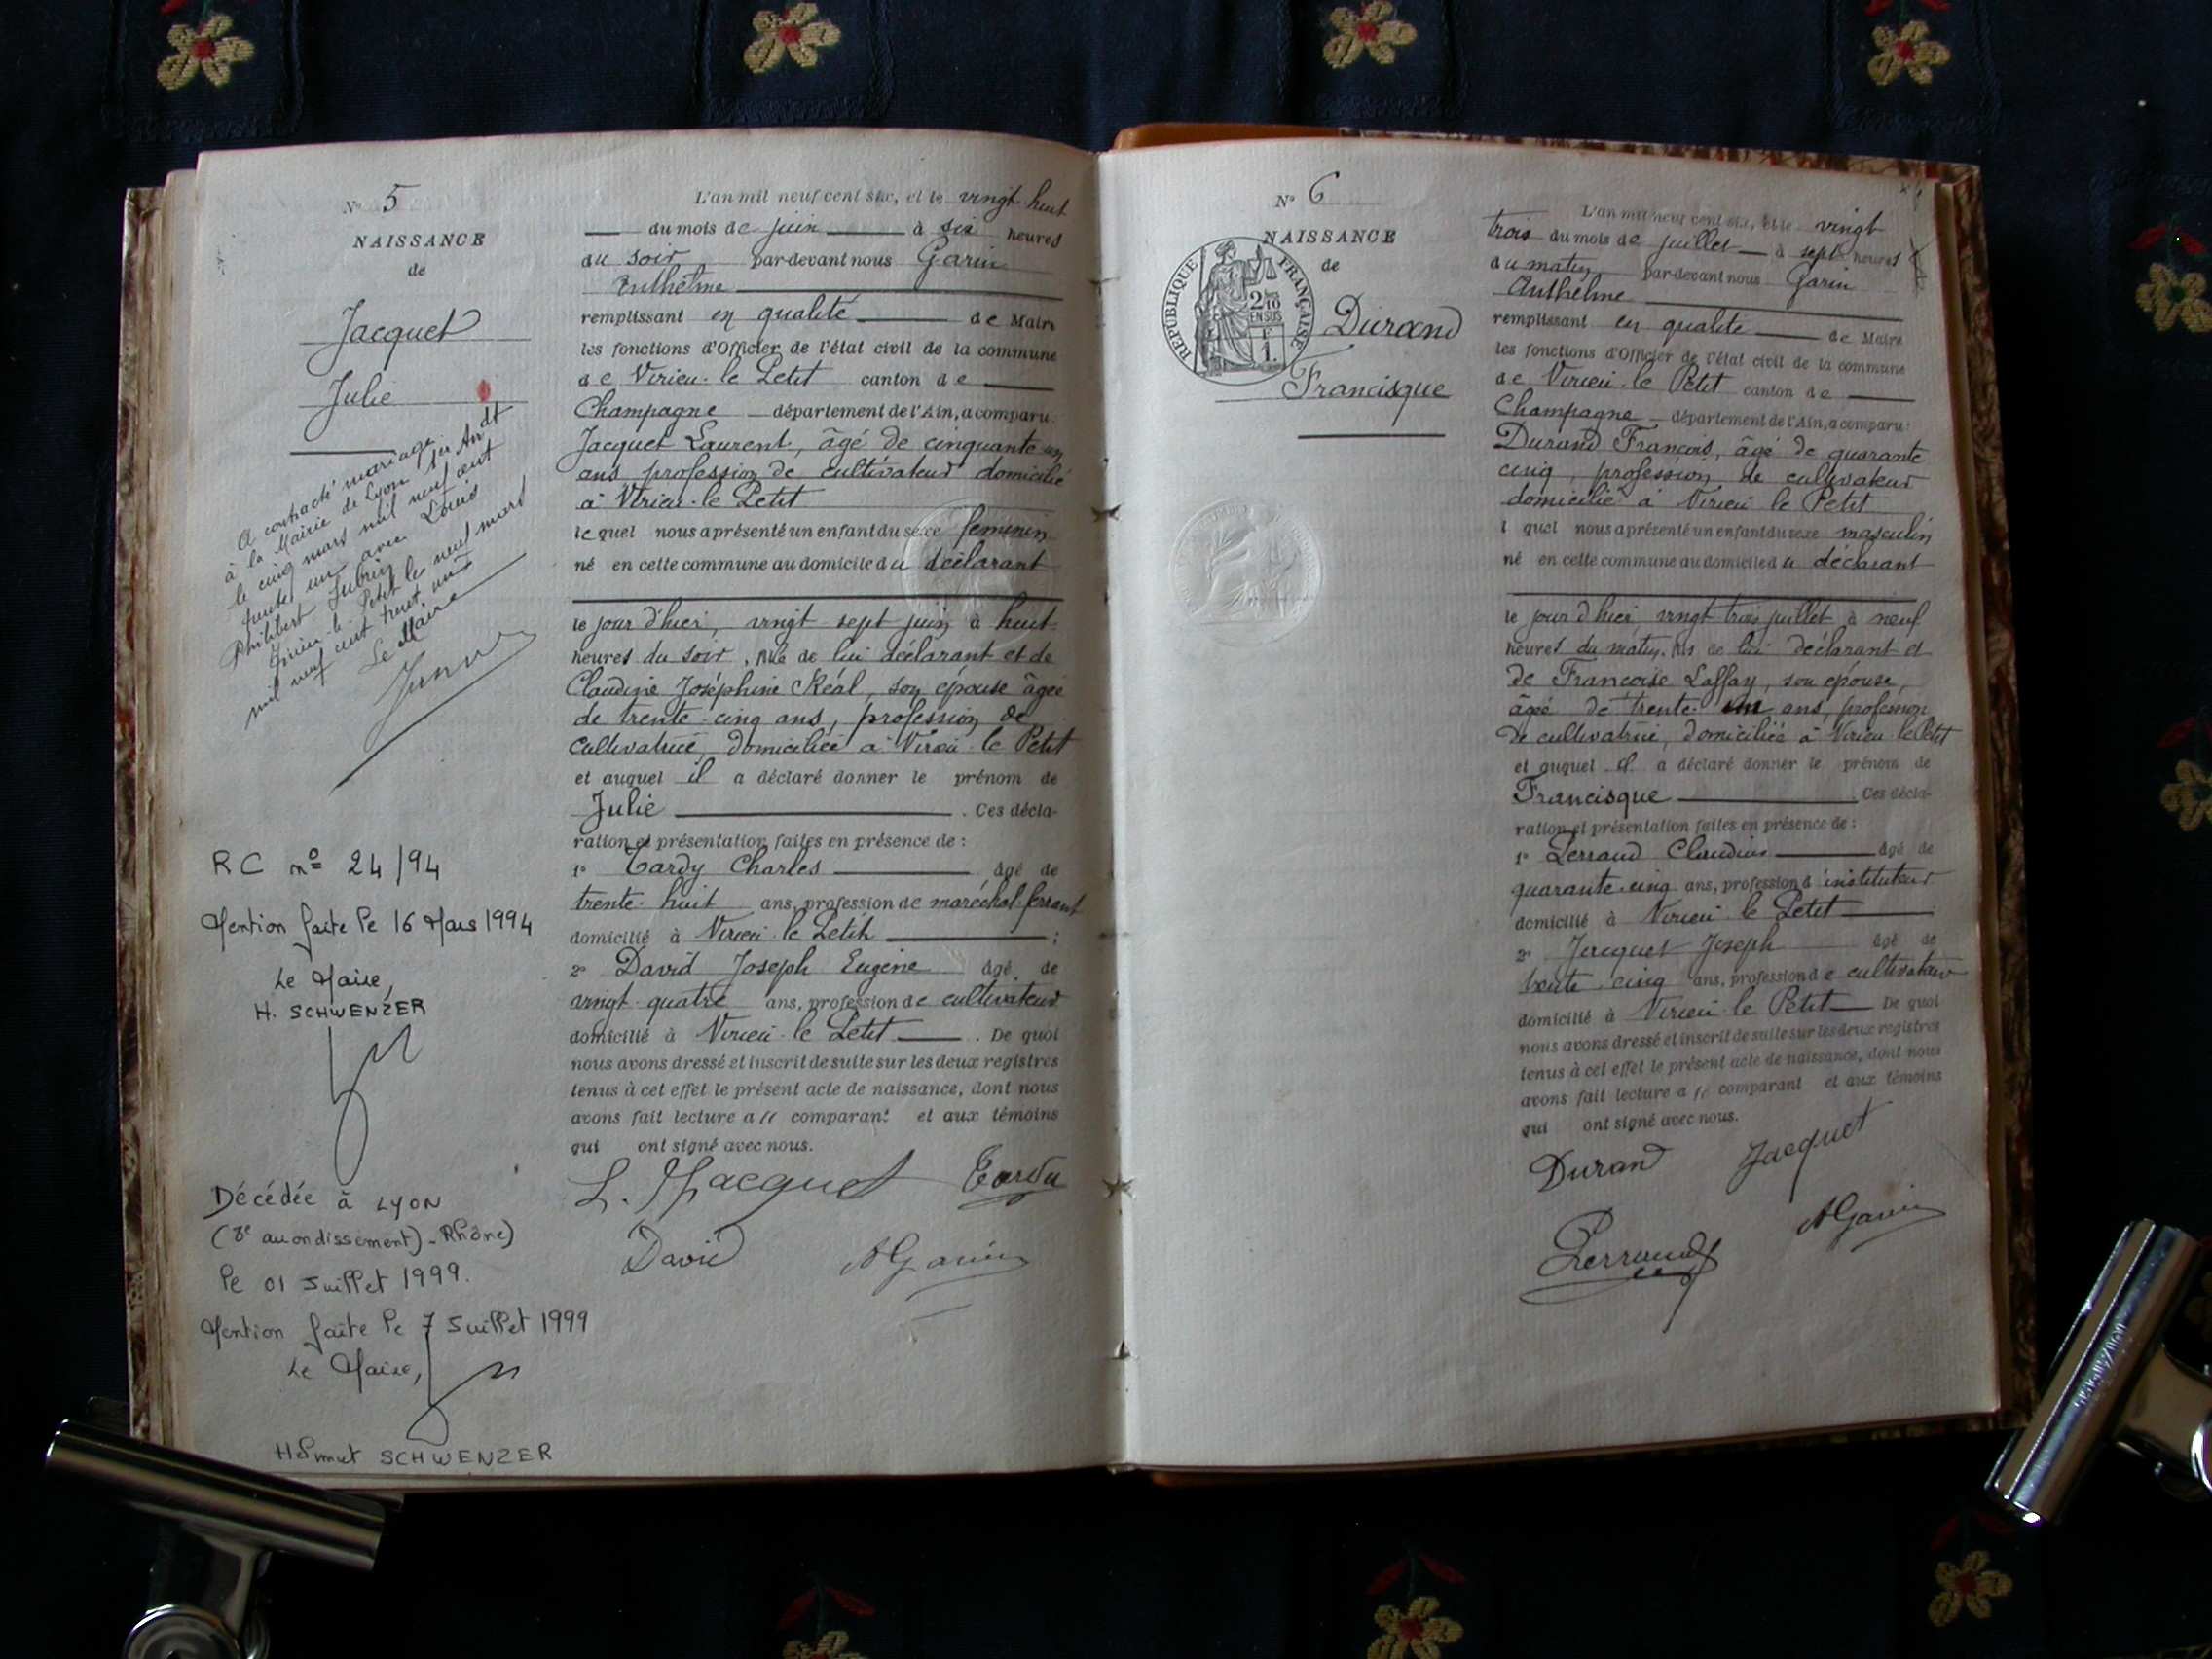 N° 5
NAISSANCE
de
Jacquet
Julie
A contracté mariage
à la Mairie de Lyon 1er Arrdt
le cinq mars mil neuf cent
trente un avec Louis
Philibert
Virieu-le-Petit le neuf mars
mil neuf cent trente un
Le Maire
RC n° 24/94
Mention faite le 16 Mars 1994
Le Maire,
H. SCHWENZER
Décédée à LYON
(8e arrondissement) - Rhône)
le 01 Juillet 1999.
Mention faite le 7 Juillet 1999
Le Maire,
Helmut SCHWENZER
L'an mil neuf cent six, et le vingt-huit
du mois de juin à six heures
du soir par-devant nous Garin
Anthelme
remplissant en qualité de Maire
les fonctions d'Officier de l'état civil de la commune
de Virieu-le Petit canton de
Champagne département de l'Ain, a comparu:
Jacquet Laurent, âgé de cinquante un
ans profession de cultivateur domicilié
à Virieu-le Petit
lequel nous a présenté un enfant du sexe féminin
né en cette commune au domicile du déclarant
le jour d'hier, vingt sept juin à huit
heures du soir, née de lui déclarant et de
Claudine Joséphine Réal, son épouse âgée
de trente-cinq ans, profession de
cultivatrice, domiciliée à Virieu-le Petit
et auquel il a déclaré donner le prénom de
Julie . Ces décla-
ration et présentation faites en présence de :
1° Tardy Charles âgé de
trente-huit ans, profession de maréchal-ferrant
domicilié à Virieu-le Petit ;
2° David Joseph Eugène âgé de
vingt-quatre ans, profession de cultivateur
domicilié à Virieu-le Petit . De quoi
nous avons dressé et inscrit de suite sur les deux registres
tenus à cet effet le présent acte de naissance, dont nous
avons fait lecture au comparant et aux témoins
qui ont signé avec nous.
L. Jacquet Tardy
David A Garin
N° 6
NAISSANCE
de
RÉPUBLIQUE FRANÇAISE
2/10
EN SUS
F
1.
Durand
Francisque
L'an mil neuf cent six, et le vingt
trois du mois de juillet à sept heures
du matin par-devant nous Garin
Anthelme
remplissant en qualité de Maire
les fonctions d'Officier de l'état civil de la commune
de Virieu-le Petit canton de
Champagne département de l'Ain, a comparu:
Durand François, âgé de quarante
cinq, profession de cultivateur
domicilié à Virieu le Petit
l quel nous a présenté un enfant du sexe masculin
né en cette commune au domicile du déclarant
le jour d'hier vingt trois juillet à neuf
heures du matin, fils de lui déclarant et
de Françoise Laffay, son épouse,
âgée de trente- ans, profession
de cultivatrice, domiciliée à Virieu le Petit
et auquel il a déclaré donner le prénom de
Francisque . Ces décla-
ration et présentation faites en présence de :
1° Perraud Claudius âgé de
quarante-cinq ans, profession d'instituteur
domicilié à Virieu-le Petit
2° Jacquet Joseph âgé de
trente-cinq ans, profession de cultivateur
domicilié à Virieu-le Petit De quoi
nous avons dressé et inscrit de suite sur les deux registres
tenus à cet effet le présent acte de naissance, dont nous
avons fait lecture au comparant et aux témoins
qui ont signé avec nous.
Durand Jacquet
Perraud A Garin